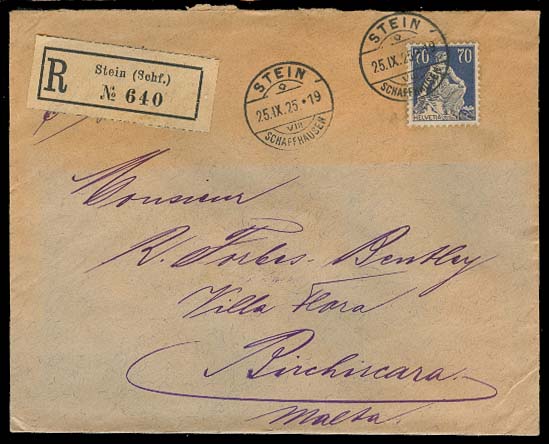 R
Stein (Schf.)
№ 640
STEIN
25.IX.25•19
VIII
SCHAFFHAUSEN
STEIN
25.IX.25•19
VIII
SCHAFFHAUSEN
70 70
HELVETIA
Monsieur
R. Forbes-Bentley
Villa Flora
Birchircara
Malta.